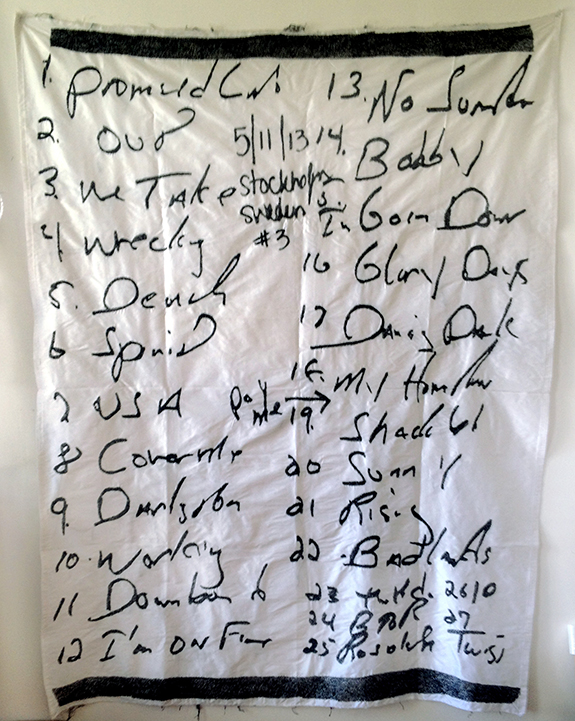 1. Promised
2. OUR
3. We TAKE
4 Wrecking
5. Death
6 Spirit
7 USA
8 Cover Me
9. Darlington
10. Working
11 Downbound
12 I'm ON Fire
5/11/13
Stockholm
Sweden
#3
13. No Surrender
14. Bobby
15. I'm Goin Down
16 Glory Days
17 Dancing Dark
18. My Hometown
19. Shackled
20 Sunny
21 Rising
22 Badlands
23 26 10
24 27
25 Rosalita Twist